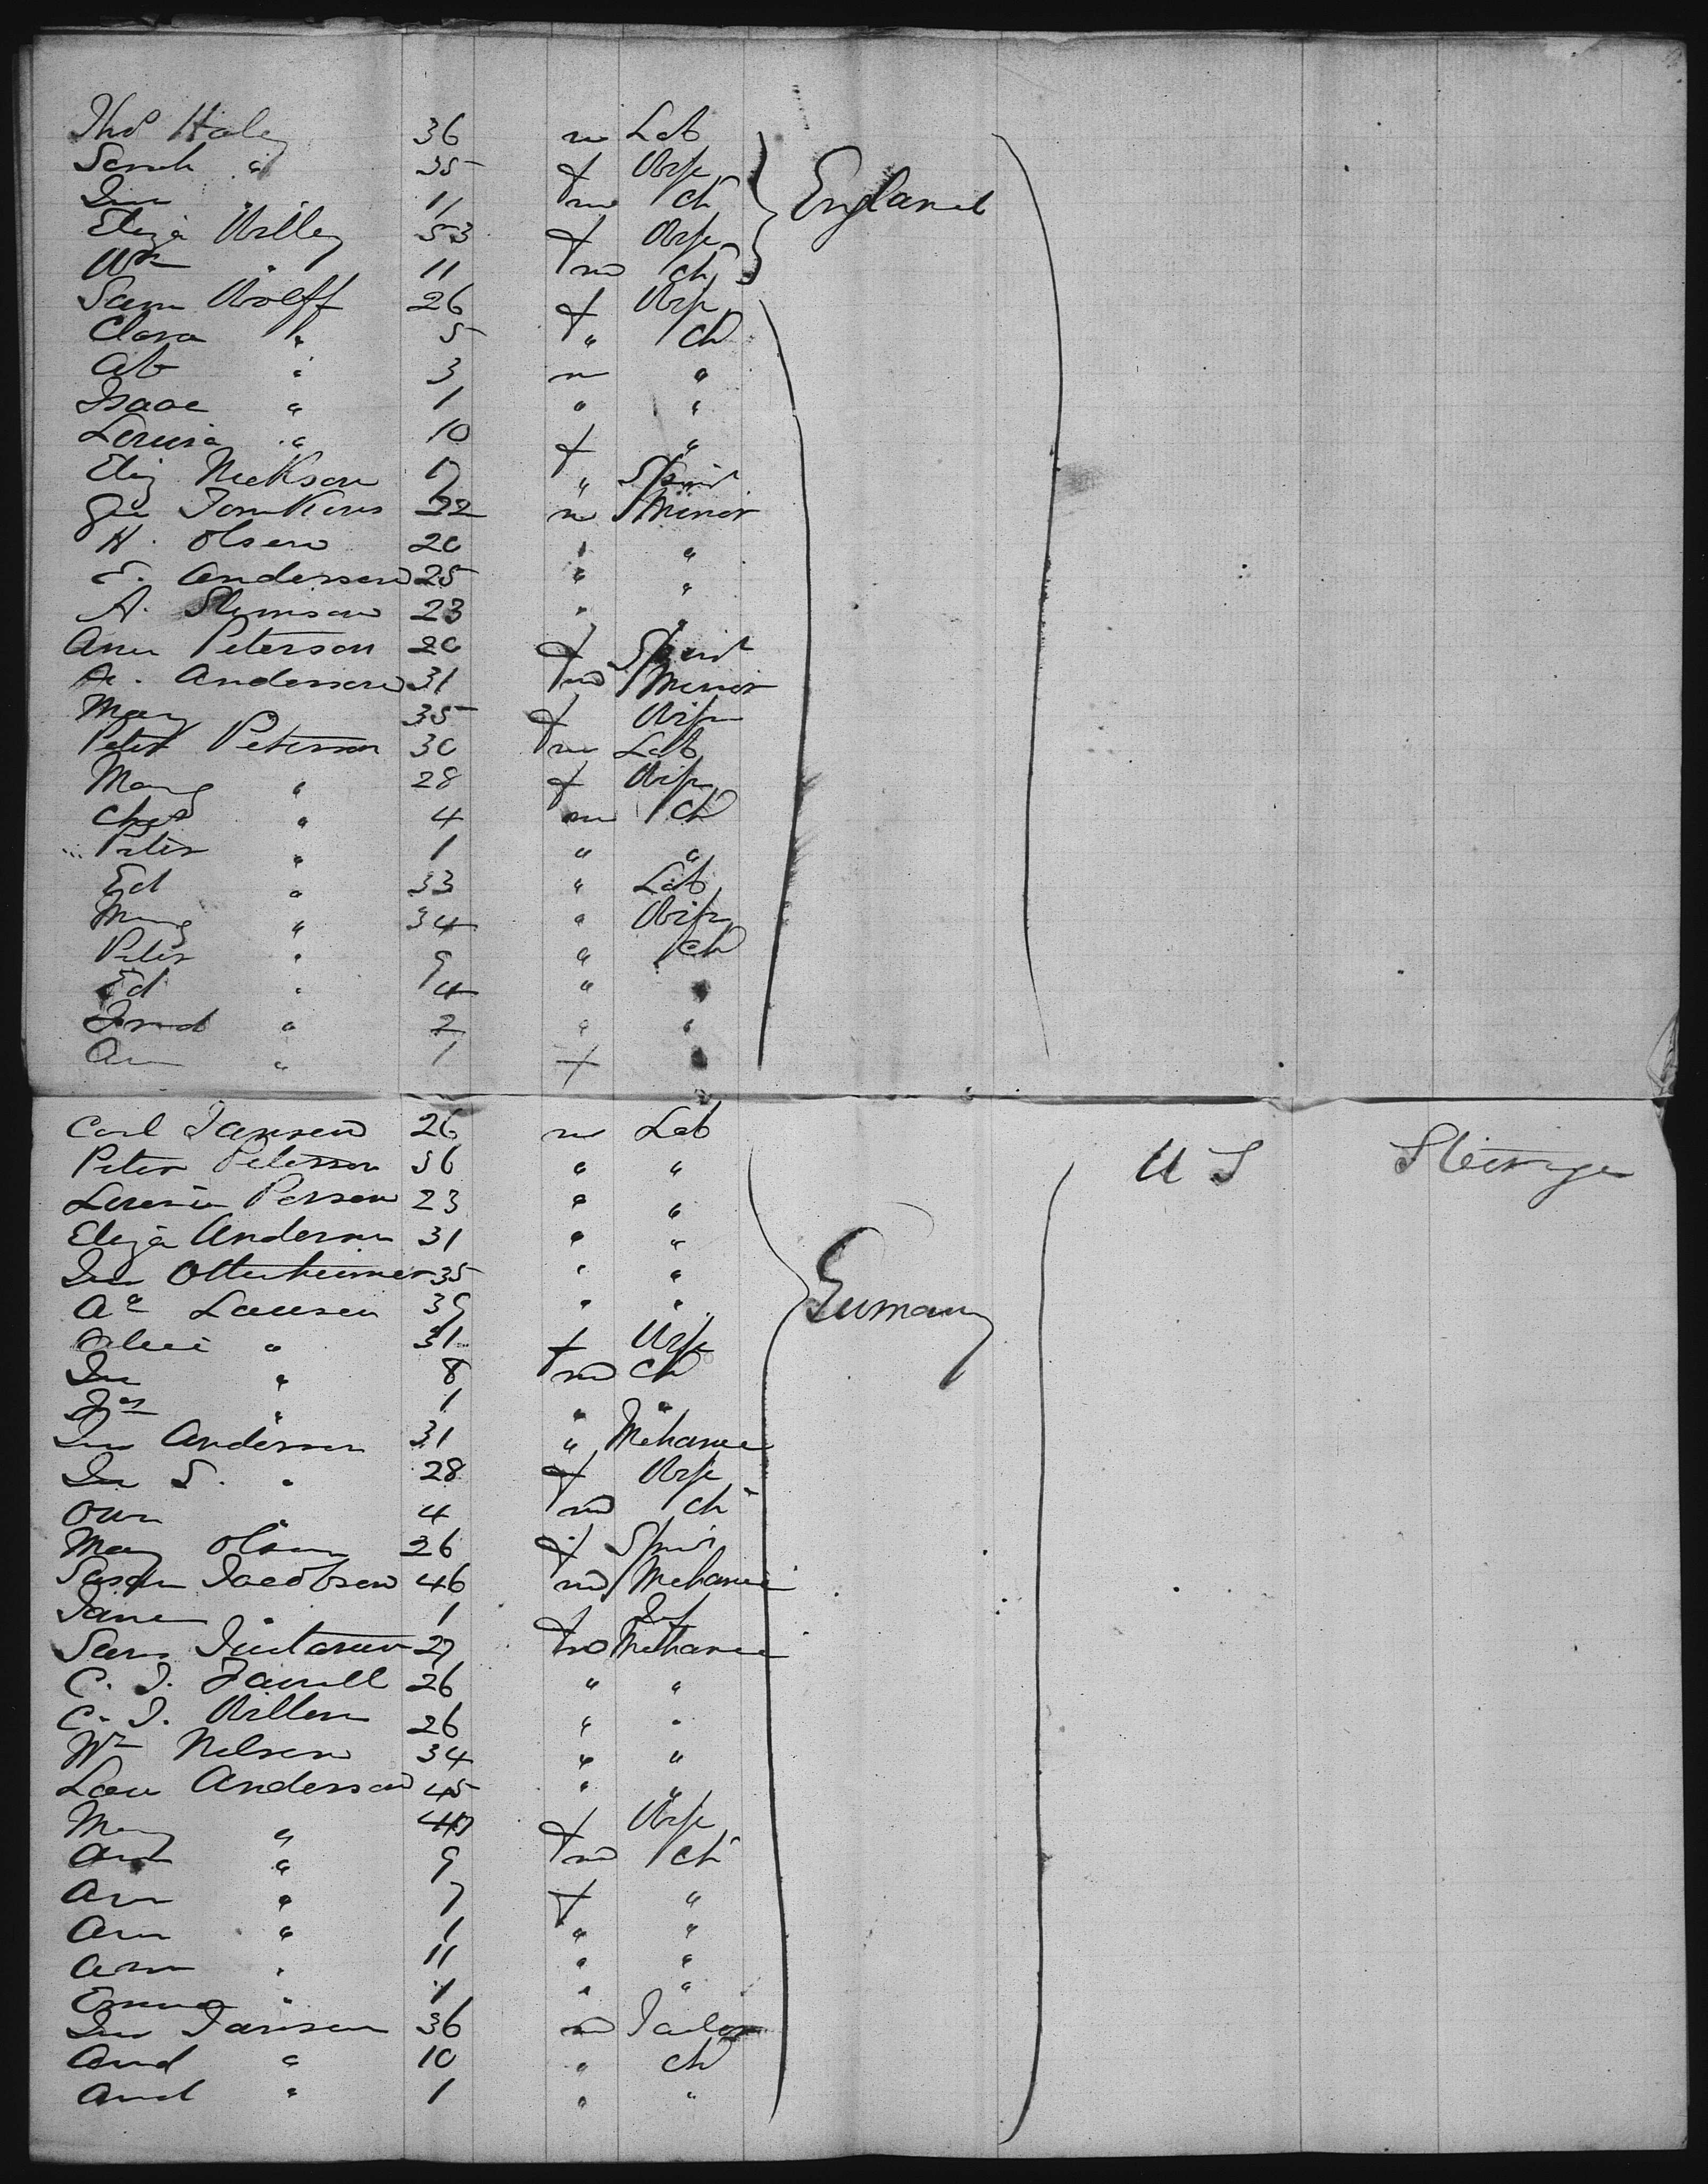 Thos Haley 36 m Lab
Sarah " 35 f Wife
Jno " 11 m Ch England
Eliza Willey 53 f Wife
Wm " 11 m Ch
Sam Wolff 26 f Wife
Clara " 5 " Ch
Ab " 3 m "
Isaac " 1 " "
Louisa " 10 f "
Eliz Nickson 17 " Spinst
Geo Tomkins 22 m Minor
H. Olsen 20 " "
E. Anderson 25 " "
A. Slemson 23 " "
Ann Peterson 20 f Spinst
A. Anderson 31 m Minor
Mary 35 f Wife
Peter Peterson 30 m Lab
Mary " 28 f Wife
Chas " 4 m Ch
Peter " 1 " "
Ed " 33 " Lab
Mary " 34 " Wife
Peter " 9 " Ch
Ed " 4 " "
Fred " 2 " "
An " 1 f "
Carl Jansen 26 m Lab
Peter Peterson 36 " " U S Steerage
Louisa Person 23 " "
Eliza Anderson 31 " "
Jno Ottenheimer 35 " "
Aa Lausen 39 " " Germany
Alice " 31 f Wife
Jno " 8 m Ch
Jas " 1 " "
Jno Anderson 31 " Mehanic
Jno S. " 28 f Wife
Own 4 m Ch
Mary Olsen 26 f Spins
Jacobsen 46 m Mehanic
Jane " 1 f Inf
Sam 27 m Mehanic
C. J. Farrell 26 " "
C. J. Willem 26 " "
Wm Nelson 34 " "
Lau Anderson 45 " "
Mary " 40 f Wife
And " 9 m Ch
Ann " 7 f "
Ann " 1 " "
Ann " 11 " "
Emma " 1 " "
Jno Jansen 36 m Tailor
And " 10 " Ch
And " 1 " "